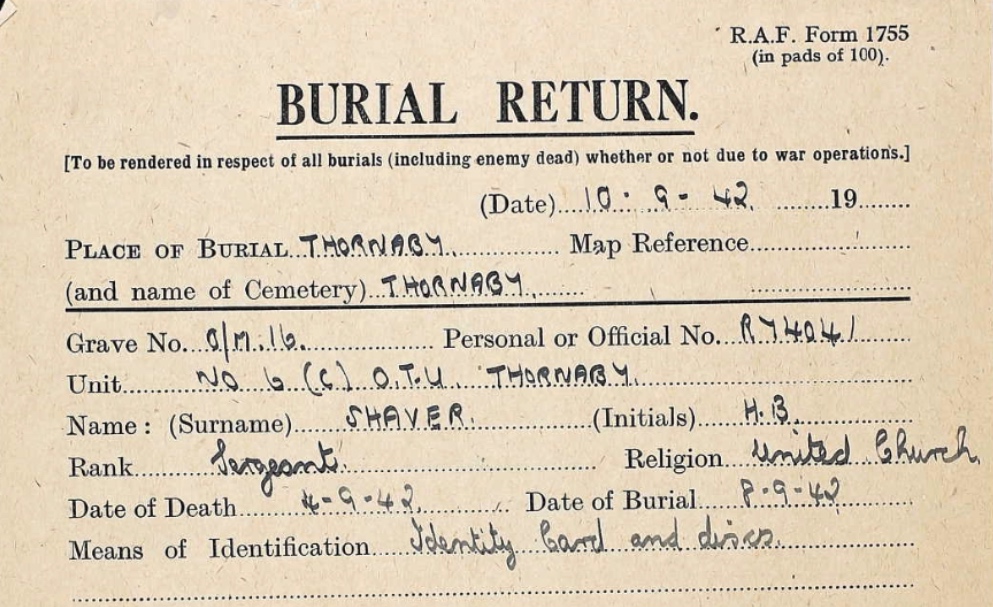 R.A.F. Form 1755
(in pads of 100).
BURIAL RETURN.
[To be rendered in respect of all burials (including enemy dead) whether or not due to war operations.]
(Date) 10 . 9 - 42 19
PLACE OF BURIAL THORNABY Map Reference
(and name of Cemetery) THORNABY
Grave No. O/M.16. Personal or Official No. R74041
Unit NO 6 (C) O.T.U THORNABY
Name : (Surname) SHAVER. (Initials) H.B.
Rank Sergeant. Religion United Church
Date of Death 4-9-42 Date of Burial 8-9-42
Means of Identification Identity Card and discs.